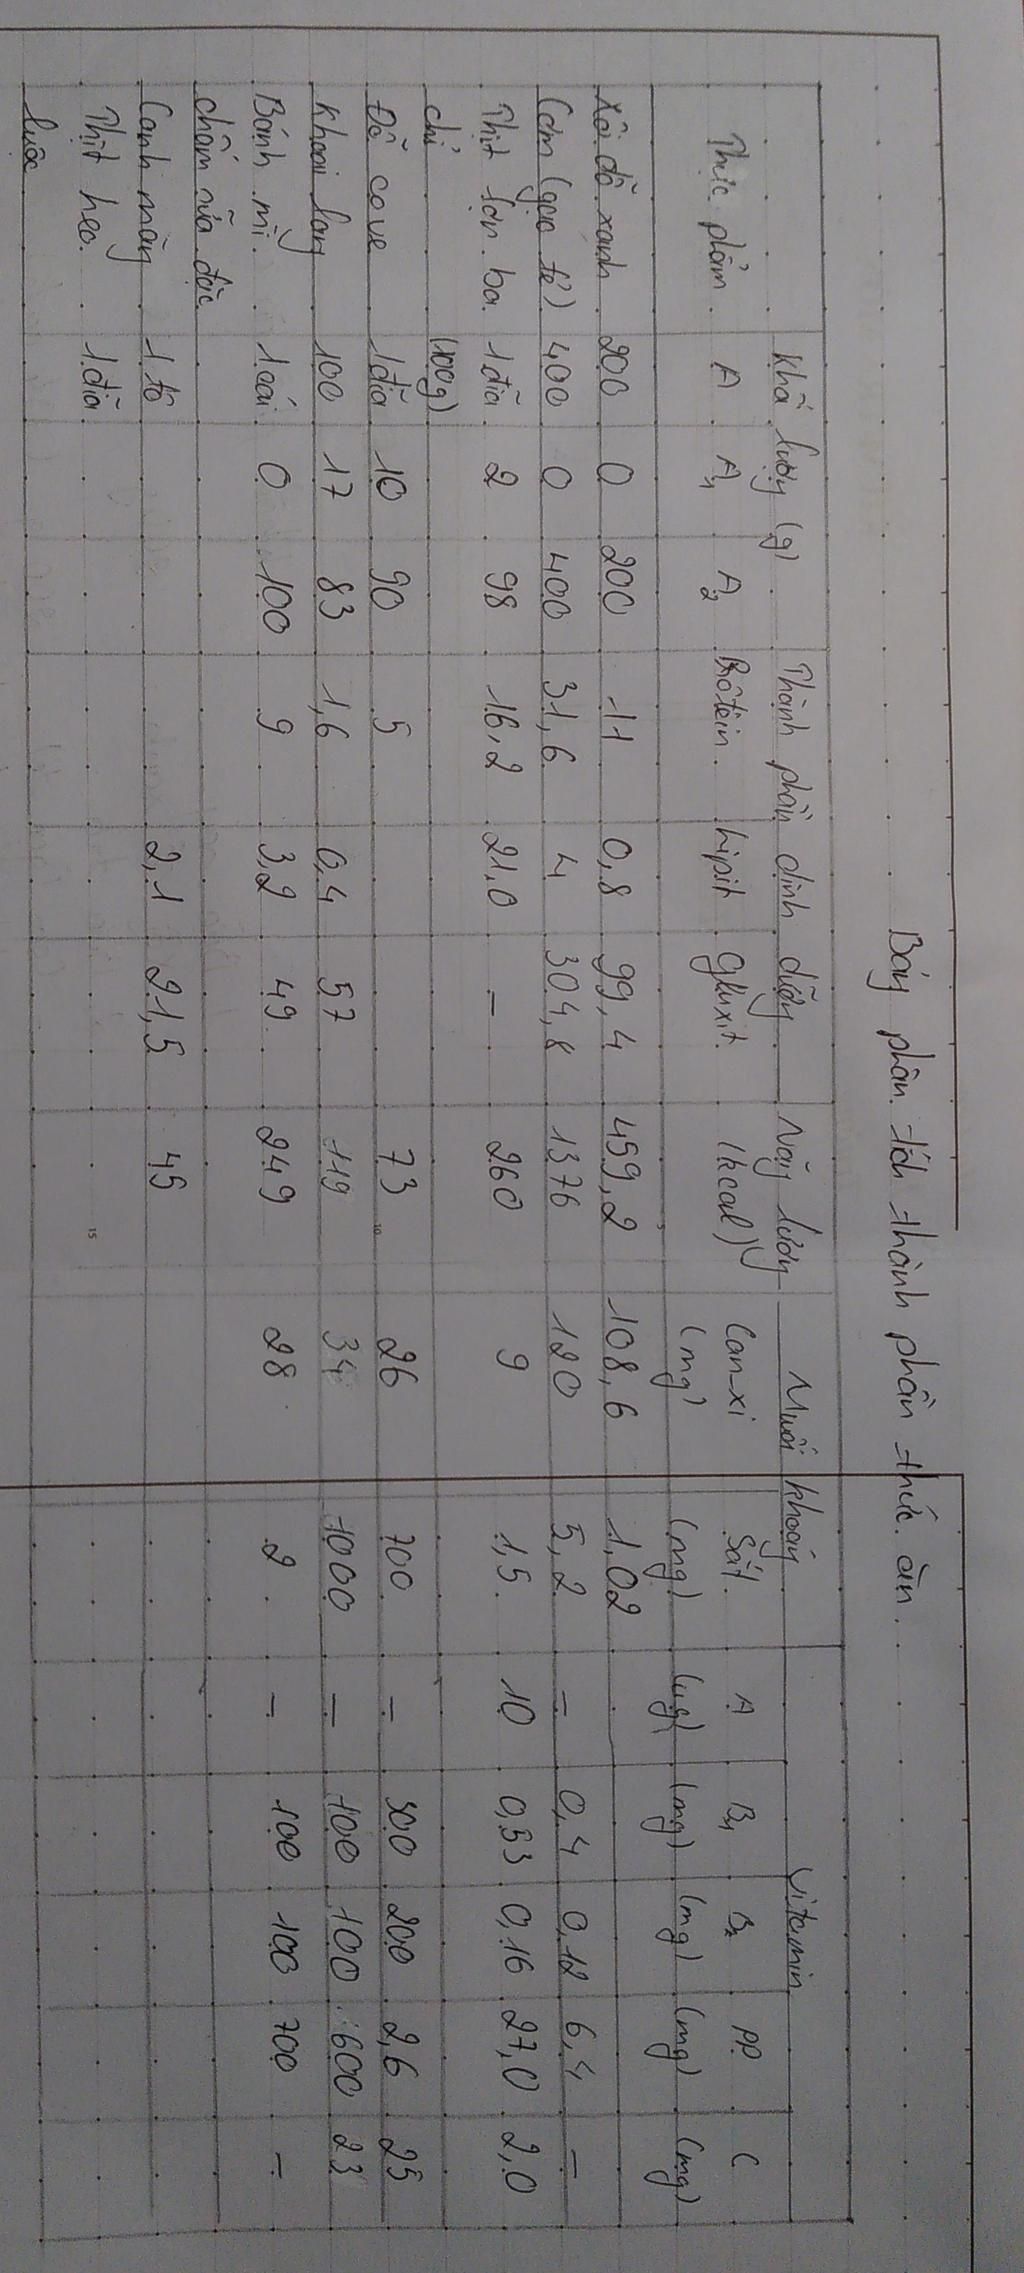 Bảng phân tích thành phần thức ăn.
Thực phẩm Khối lượng (g) Thành phần dinh dưỡng Năng lượng (kcal) Muối khoáng Vitamin
A A1 A2 Prôtêin Lipit Gluxit Can-xi (mg) Sắt (mg) A (µg) B1 (mg) B2 (mg) PP (mg) C (mg)
Xôi đỗ xanh 200 0 200 11 0,8 99,4 459,2 108,6 1,02
Cơm (gạo tẻ) 400 0 400 31,6 4 304,8 1376 120 5,2 – 0,4 0,12 6,4 –
Thịt lợn ba chỉ 1 đĩa (100g) 2 98 16,2 21,0 – 260 9 1,5 10 0,53 0,16 27,0 2,0
Đỗ cove 1 đĩa 10 90 5 73 26 700 – 300 200 2,6 25
Khoai lang 100 17 83 1,6 0,4 57 119 34 1000 – 100 100 600 23
Bánh mì chấm sữa đặc 1 cái 0 100 9 3,2 49 249 28 2 – 100 100 700 –
Canh măng 1 tô 2,1 21,5 45
Thịt heo luộc 1 đĩa
15